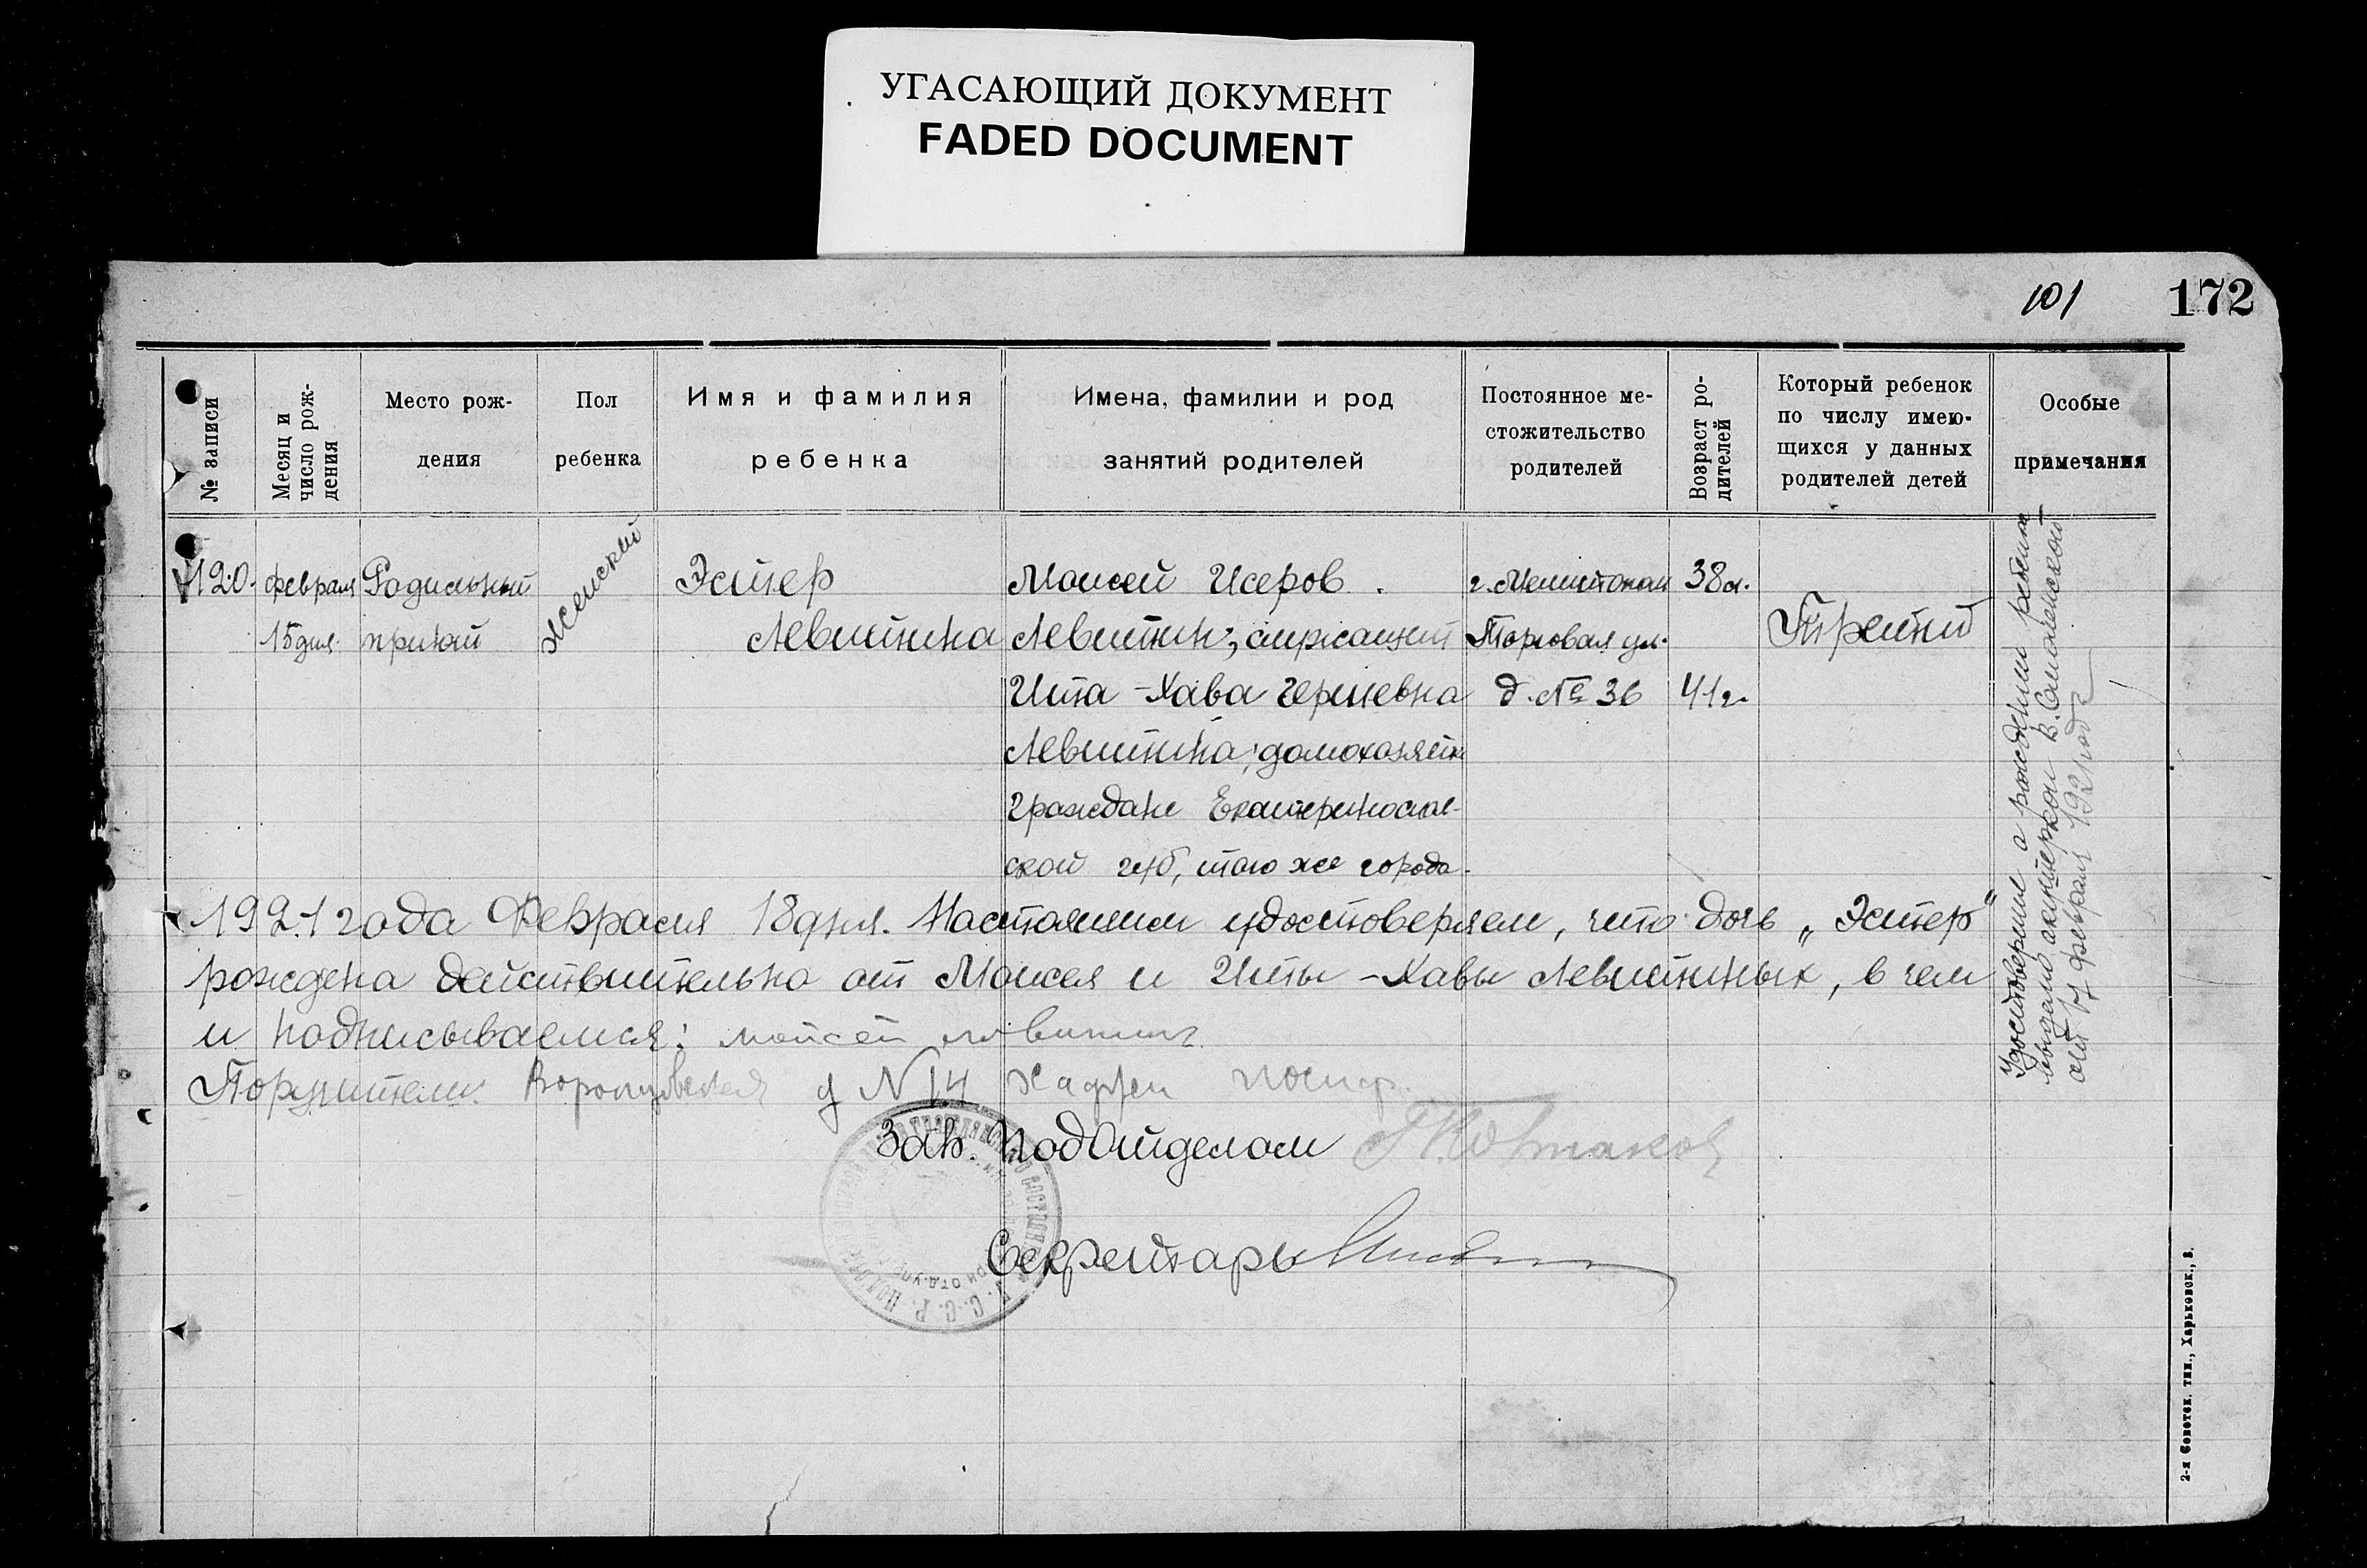 УГАСАЮЩИЙ ДОКУМЕНТ
FADED DOCUMENT
101
172
№ записи
Месяц и
число рож-
дения
Место рож-
дения
Пол
ребенка
Имя и фамилия
ребенка
Имена, фамилии и род
занятий родителей
Постоянное ме-
стожительство
родителей
Возраст ро-
дителей
Который ребенок
по числу имею-
щихся у данных
родителей детей
Особые
примечания
120.
февраля
15 дня.
Родильный
приют
женский
Эстер
Левитина
Моисей Исеров.
Левитин, служащий
Ита-Хава Гершевна
Левитина; домохозяйк
граждане Екатеринослав-
ской губ, того же города.
г. Мелитополь
Торговая ул.
д. № 36
38 л.
41 г.
Третий
Удостоверение о рождении ребенка
выдано акушеркой В. Смоленской
от 17 февраля 1921 года
1921 года Февраля 18 дня. Настоящим удостоверяем, что дочь „Эстер"
рождена действительно от Моисея и Иты-Хавы Левитиных, в чем
и подписываемся: мойсей левитин
Поручители: д N 14
Зав. ПодОтделом
Секретарь
2-я Советск. тип., Харьковск., 8.